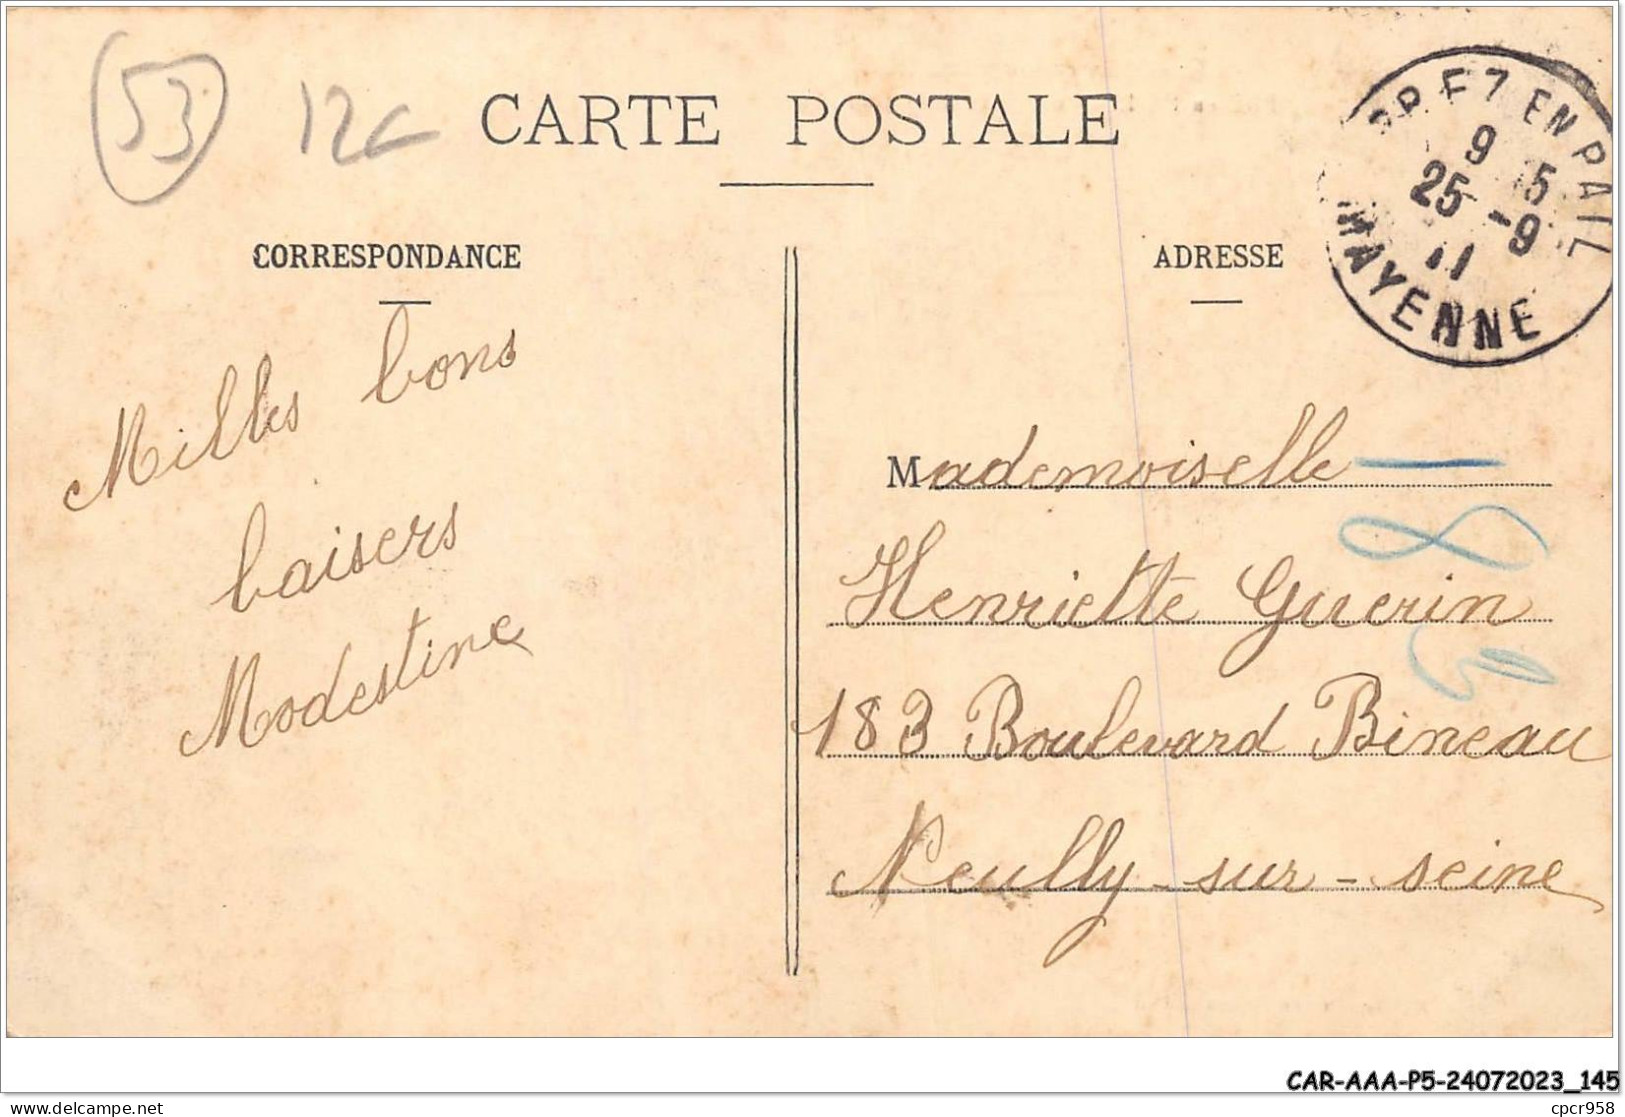 53 12c
CARTE POSTALE
PREZ EN PAIL
9 15
25 -9
11
MAYENNE
CORRESPONDANCE
ADRESSE
Milles bons
baisers
Modestine
Mademoiselle
Henriette Guerin
183 Boulevard Bineau
Neuilly-sur-seine
CAR-AAA-P5-24072023_145
cpcr958